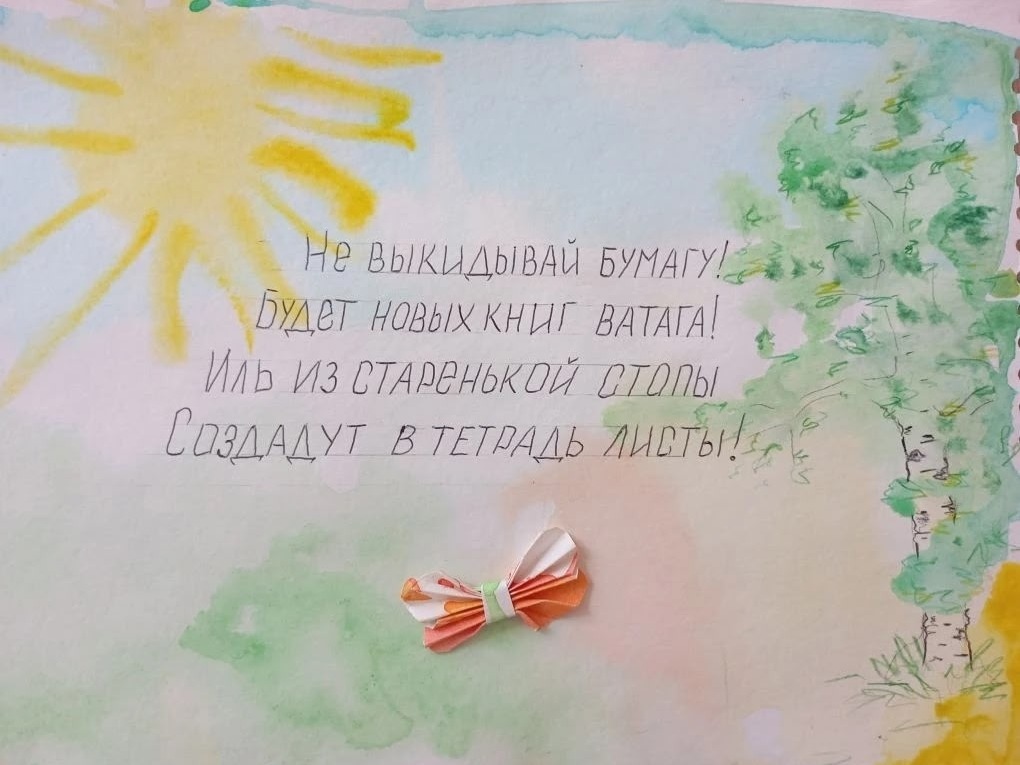 Не выкидывай бумагу!
Будет новых книг ватага!
Иль из старенькой стопы
Создадут в тетрадь листы!